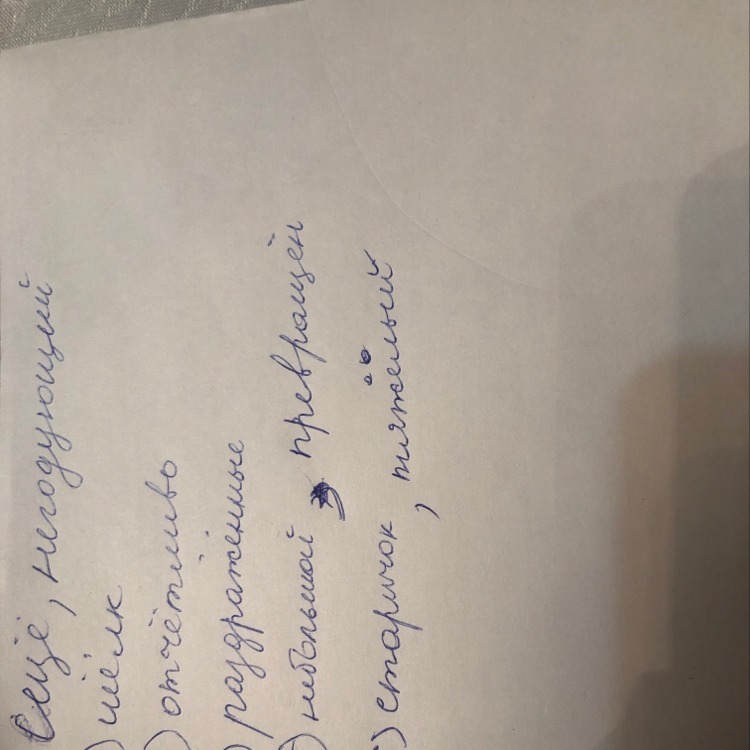 ещё, негодующий
) шёлк
) отчётливо
) раздражённые
) небольшой, превращён
) старичок, тяжёлый